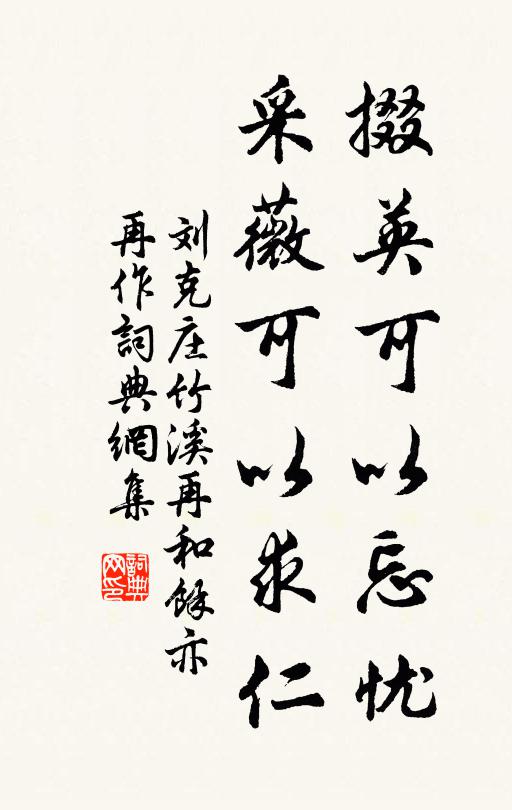 掇英可以忘忧
采薇可以求仁
刘克庄竹溪再和馀亦
再作詞典網集
詞典网印